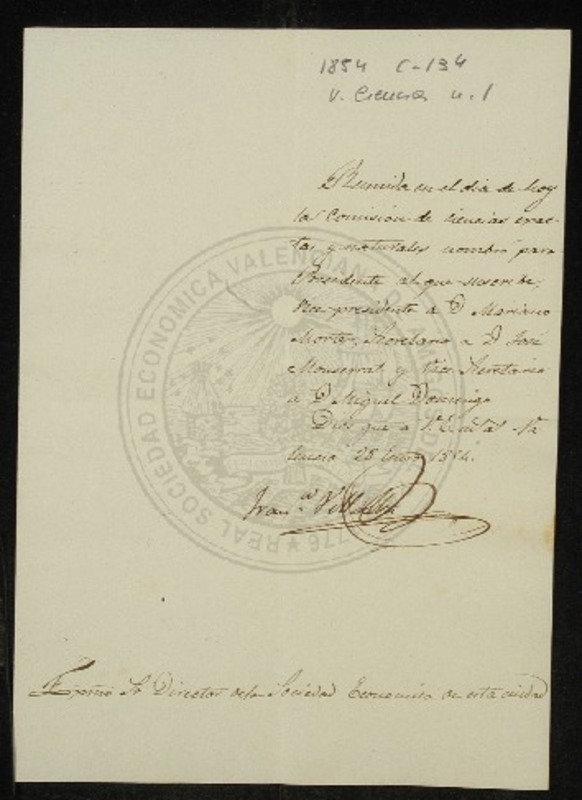 1854 C-134
V. Ciencias n. 1
Reunida en el dia de hoy
la Comision de ciencias exac-
tas y naturales nombró para
Presidente al que suscribe,
Vice-presidente a D. Mariano
Morter, Secretario a D. José
Monserrat y Vice Secretario
a D. Miguel Domingo
Dios gue a V.E. Va
lencia 25 Enero 1854.
Fran.co Villalba
Exmo Sr Director de la Sociedad Economica de esta ciudad
REAL SOCIEDAD ECONOMICA VALENCIANA DE AMIGOS DEL 1776